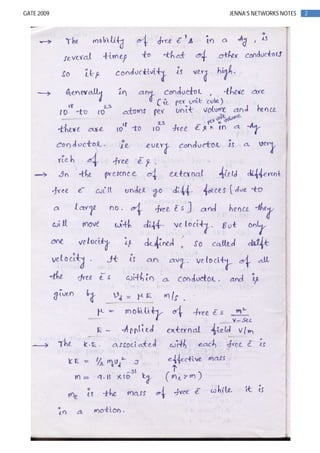 GATE 2009
JENNA'S NETWORKS NOTES 2
→ The mobility of free ē's in a Ag, is
several times to that of other conductors
so its conductivity is very high.
→ Generally in any conductor, there are
(ie per unit cube)
10^18 to 10^23 atoms per unit volume and hence
per unit volume
there are 10^18 to 10^23 free ēs in a Ag
conductor. ie every conductor is a very
rich of free ēs.
→ In the presence of external field different
free ē will under go diff. forces [due to
a large no. of free ēs] and hence they
will move with diff. velocity. But only
one velocity is defined, so called drift
velocity. It is an avg. velocity of all
the free ēs within a conductor. and is
given by Vd = μE m/s.
μ - mobility of free ēs m²/V-sec
E - Applied external field V/m
→ The K.E. associated with each free ē is
KE = ½ me vd² J effective mass
↑
m = 9.11 x10^-31 kg (me > m)
me is the mass of free ē while it is
in a motion.